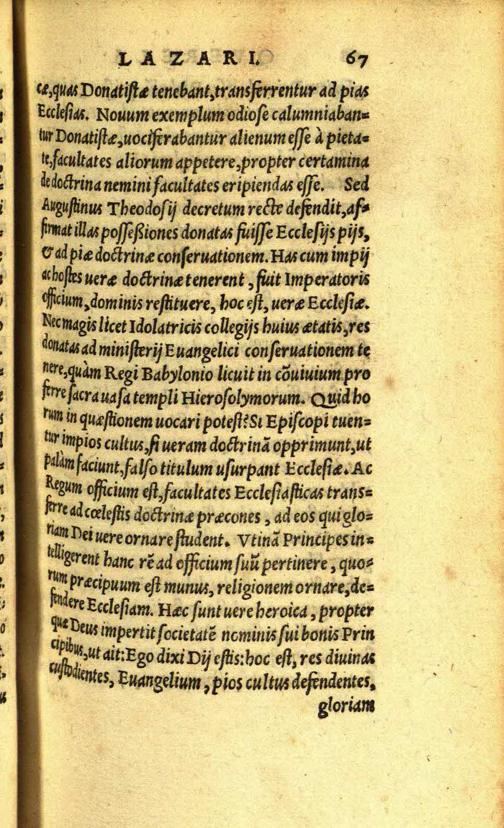 LAZARI. 67
cæ, quas Donatistæ tenebant, transferrentur ad pias
Ecclesias. Nouum exemplum odiose calumniaban=
tur Donatistæ, uociferabantur alienum esse à pieta=
te, facultates aliorum appetere, propter certamina
de doctrina nemini facultates eripiendas esse. Sed
Augustinus Theodosij decretum recte defendit, af=
firmat illas possessiones donatas fuisse Ecclesijs pijs,
& ad piæ doctrinæ conseruationem. Has cum impij
ac hostes ueræ doctrinæ tenerent, fuit Imperatoris
officium, dominis restituere, hoc est, ueræ Ecclesiæ.
Nec magis licet Idolatricis collegijs huius ætatis, res
donatas ad ministerij Euangelici conseruationem te
nere, quàm Regi Babylonio licuit in cõuiuium pro
ferre sacra uasa templi Hierosolymorum. Quid ho
rum in quæstionem uocari potest? Si Episcopi tuen=
tur impios cultus, si ueram doctrinã opprimunt, ut
palàm faciunt, falso titulum usurpant Ecclesiæ. Ac
Regum officium est, facultates Ecclesiasticas trans=
ferre ad cœlestis doctrinæ præcones, ad eos qui glo=
riam Dei uere ornare student. Vtinã Principes in=
telligerent hanc rẽ ad officium suũ pertinere, quo=
rum præcipuum est munus, religionem ornare, de=
fendere Ecclesiam. Hæc sunt uere heroica, propter
quæ Deus impertit societatẽ nominis sui bonis Prin
cipibus, ut ait: Ego dixi Dij estis: hoc est, res diuinas
custodientes, Euangelium, pios cultus defendentes,
gloriam